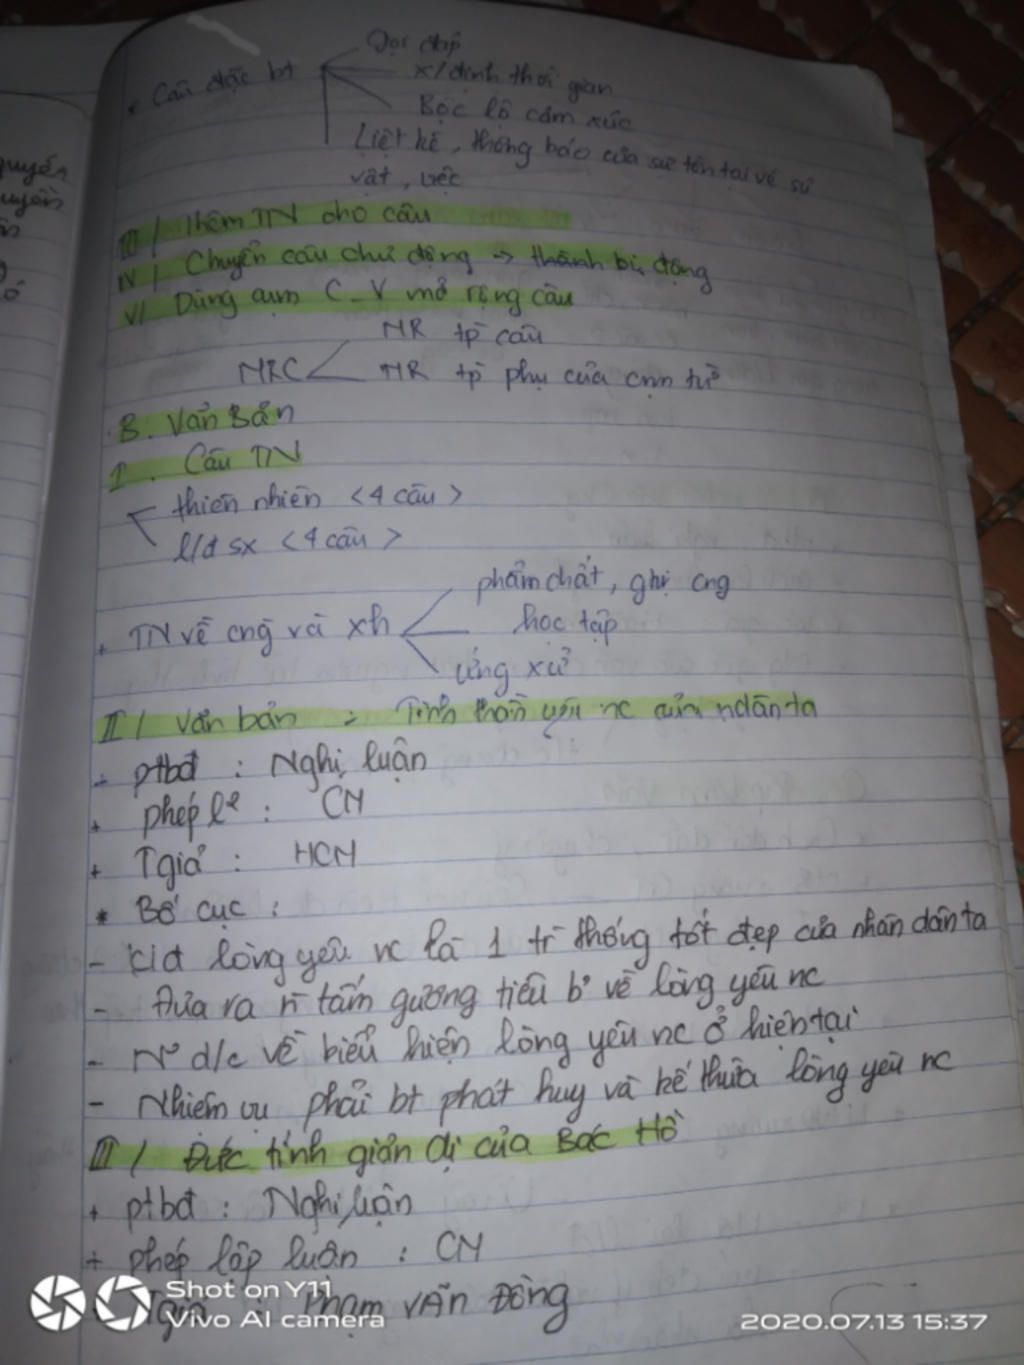 + Câu đặc bt
Gọi đáp
x/định thời gian
Bộc lộ cảm xúc
Liệt kê, thông báo của sự tồn tại về sự
vật, việc
III / Thêm TN cho câu
IV / Chuyển câu chủ động → thành bị động
V / Dùng cụm C-V mở rộng câu
MRC
MR tp câu
MR tp phụ của cụm từ
B. Văn Bản
I. Câu TN
thiên nhiên <4 câu>
l/đ sx <4 câu>
+ TN về cng và xh
phẩm chất, ghị cng
học tập
ứng xử
II / Văn bản : Tinh thần yêu nc của ndân ta
+ ptbđ : Nghị luận
+ phép l² : CM
+ Tgiả : HCM
* Bố cục :
- lòng yêu nc là 1 tr thống tốt đẹp của nhân dân ta
- Đưa ra n~ tấm gương tiêu b' về lòng yêu nc
- N~ d/c về biểu hiện lòng yêu nc ở hiện tại
- Nhiệm vụ phải bt phát huy và kế thừa lòng yêu nc
III / Đức tính giản dị của Bác Hồ
+ ptbđ : Nghị luận
+ phép lập luận : CM
Tgiả : Phạm Văn Đồng
Shot on Y11
Vivo AI camera
2020.07.13 15:37